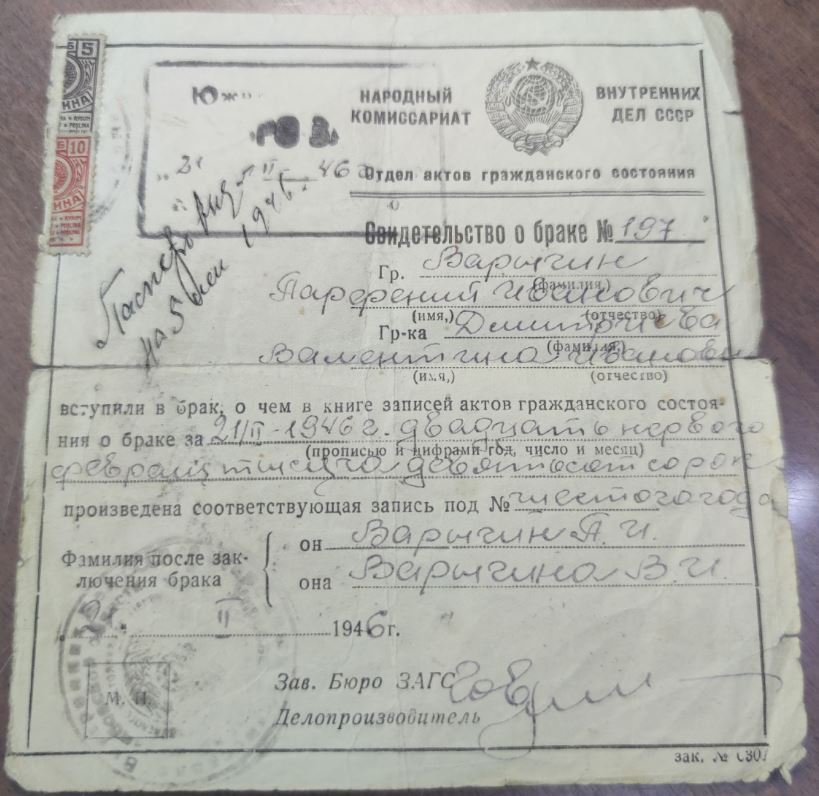 5
10
НАРОДНЫЙ КОМИССАРИАТ
ВНУТРЕННИХ ДЕЛ СССР
Отдел актов гражданского состояния
II 46 г
на 5 лет 1946 г.
Свидетельство о браке № 197
Гр. Варыгин
(фамилия,)
Парфений Иванович
(имя,) (отчество)
Гр-ка Дмитриева
(фамилия,)
Валентина Ивановн
(имя,) (отчество)
вступили в брак, о чем в книге записей актов гражданского состоя-
ния о браке за 21/II-1946 г. двадцать первого
(прописью и цифрами год, число и месяц)
февраля тысяча девятьсот сорок
произведена соответствующая запись под № шестого года
Фамилия после зак-
лючения брака
он Варыгин П. И.
она Варыгина В. И.
II 1946 г.
М. П.
Зав. Бюро ЗАГС
Делопроизводитель
зак. №